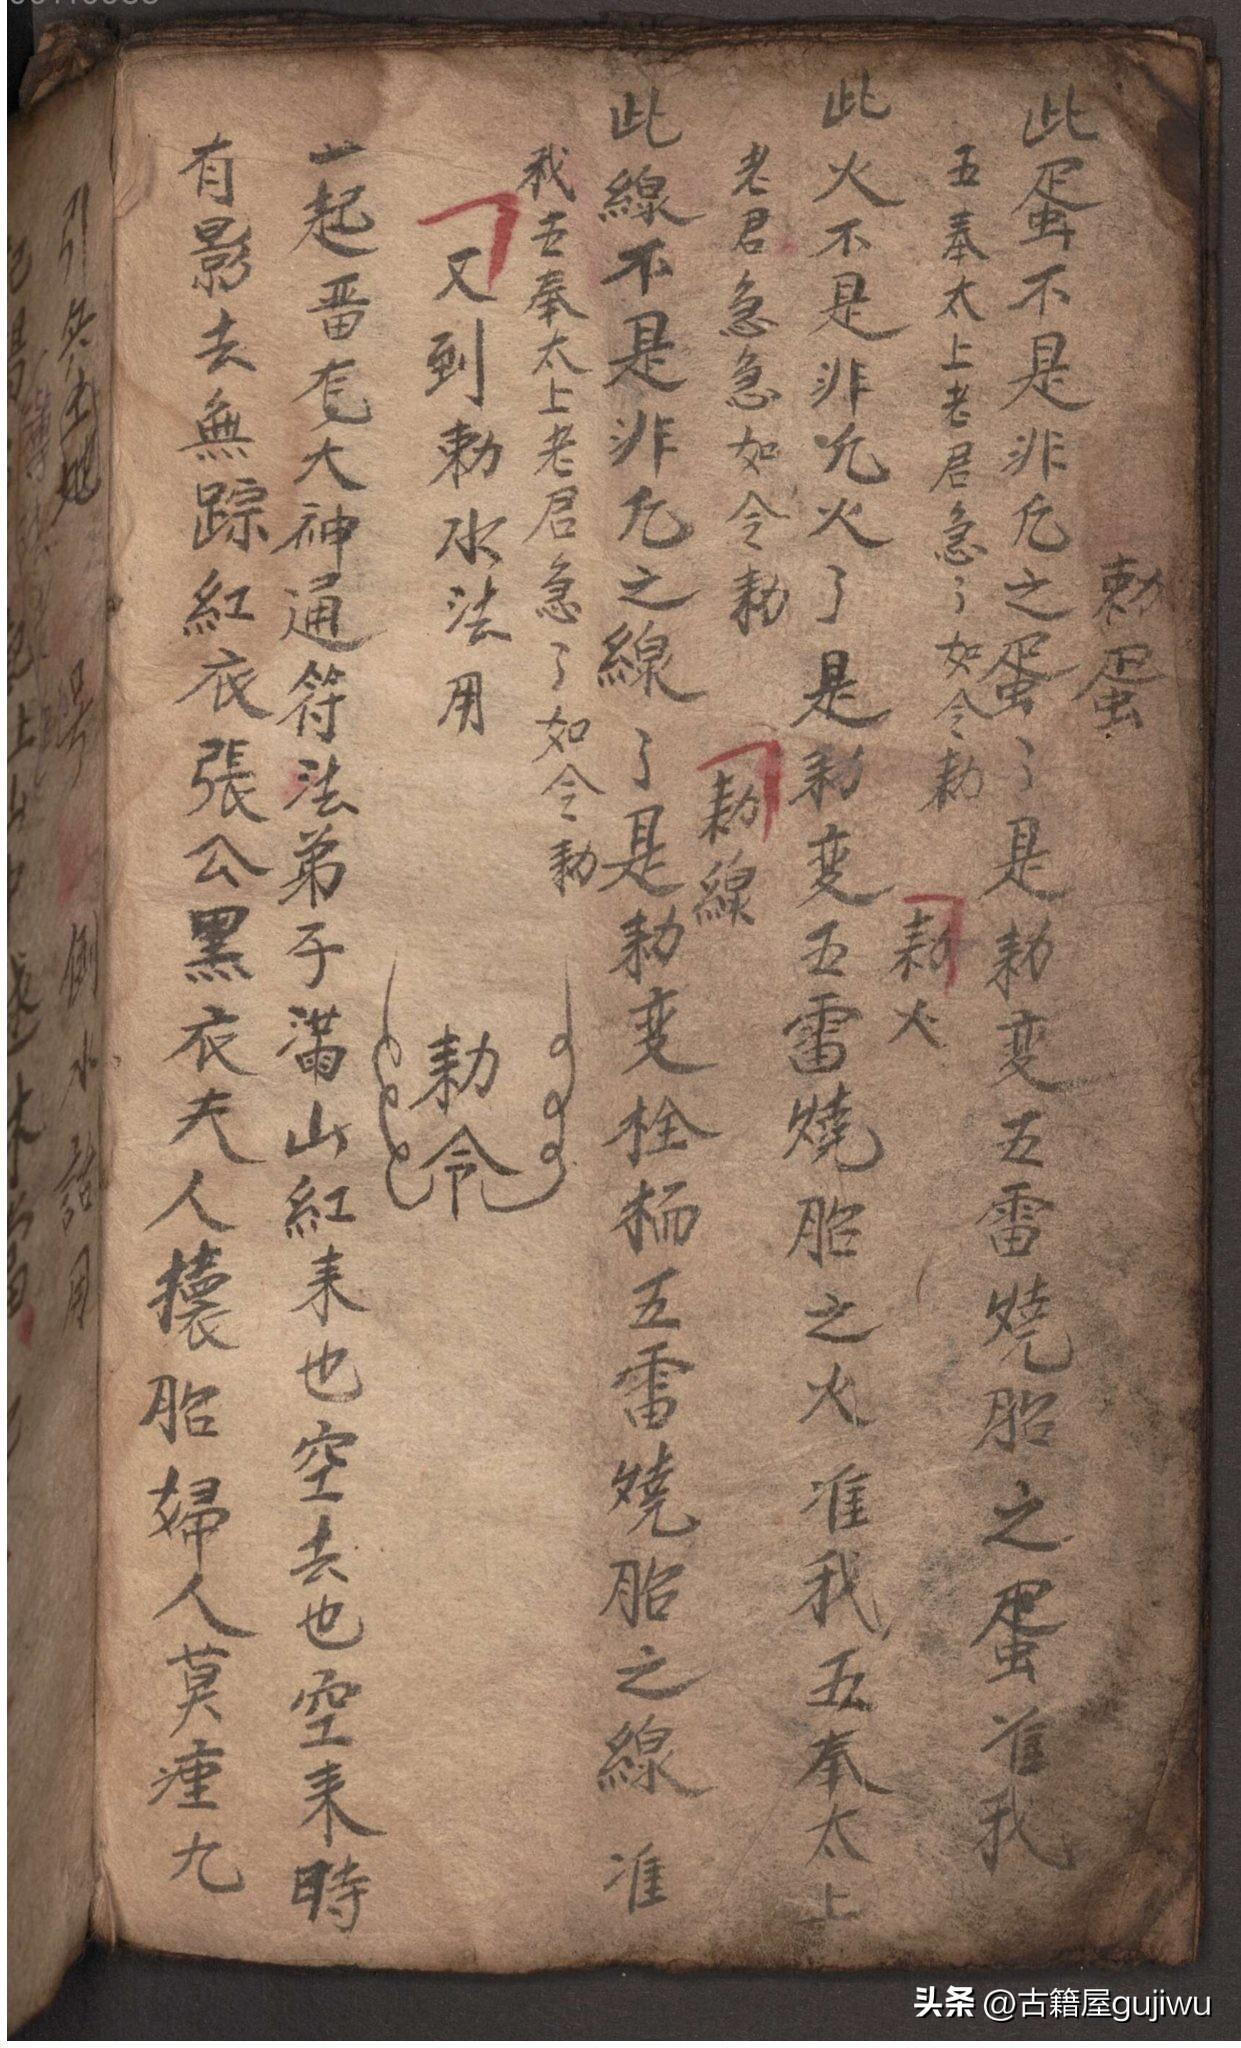 勅蛋
此蛋不是非凢之蛋了是勅变五雷燒胎之蛋准我
五奉太上老君急了如令勅
勅火
此火不是非凢火了是勅变五雷燒胎之火准我五奉太上
老君急急如令勅
勅線
此線不是非凢之線了是勅变栓五雷燒胎之線准
我吉奉太上老君急了如令勅
又到勅水法用
勅令
一起晋大神通符法弟子滿山紅来也空去也空来時
有影去無踪紅衣張公黑衣夫人攘胎婦人莫痙九
倒水語用
头条 @古籍屋gujiwu